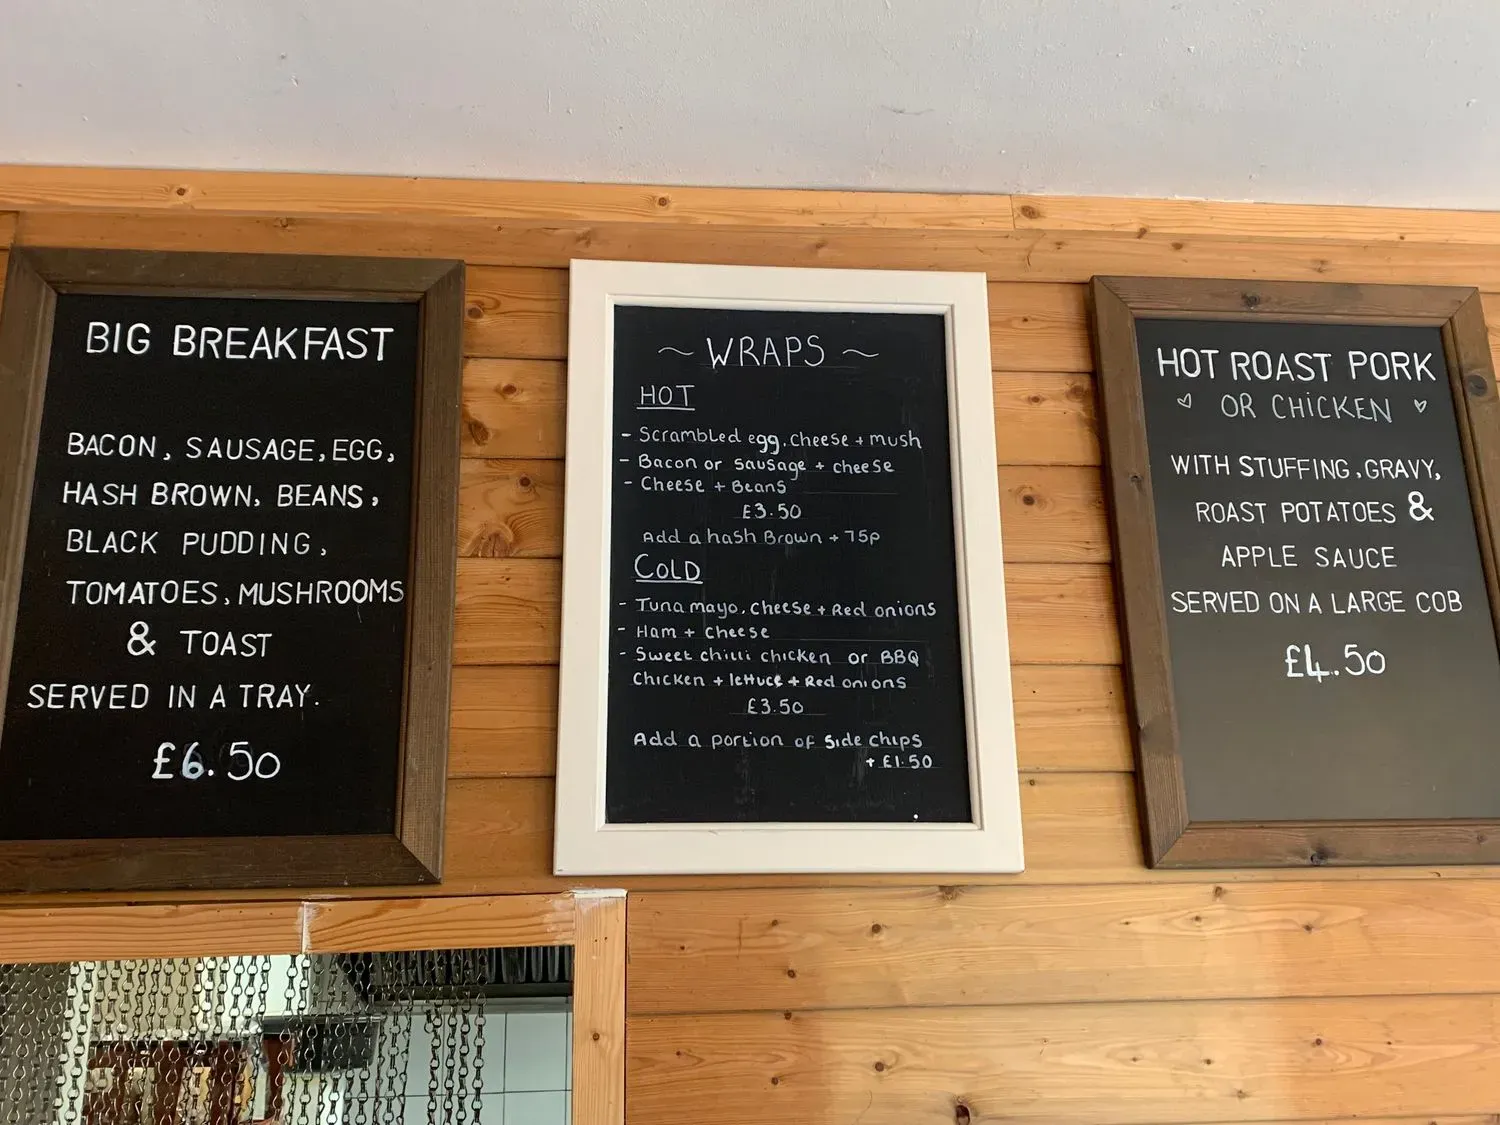 BIG BREAKFAST
BACON, SAUSAGE, EGG,
HASH BROWN, BEANS,
BLACK PUDDING,
TOMATOES, MUSHROOMS
& TOAST
SERVED IN A TRAY.
£6.50
~ WRAPS ~
HOT
- Scrambled egg, cheese + mush
- Bacon or sausage + cheese
- Cheese + Beans
£3.50
Add a hash Brown + 75p
COLD
- Tuna mayo, cheese + Red onions
- Ham + cheese
- Sweet chilli chicken or BBQ
Chicken + lettuce + Red onions
£3.50
Add a portion of side chips
+ £1.50
HOT ROAST PORK
♡ OR CHICKEN ♡
WITH STUFFING, GRAVY,
ROAST POTATOES &
APPLE SAUCE
SERVED ON A LARGE COB
£4.50